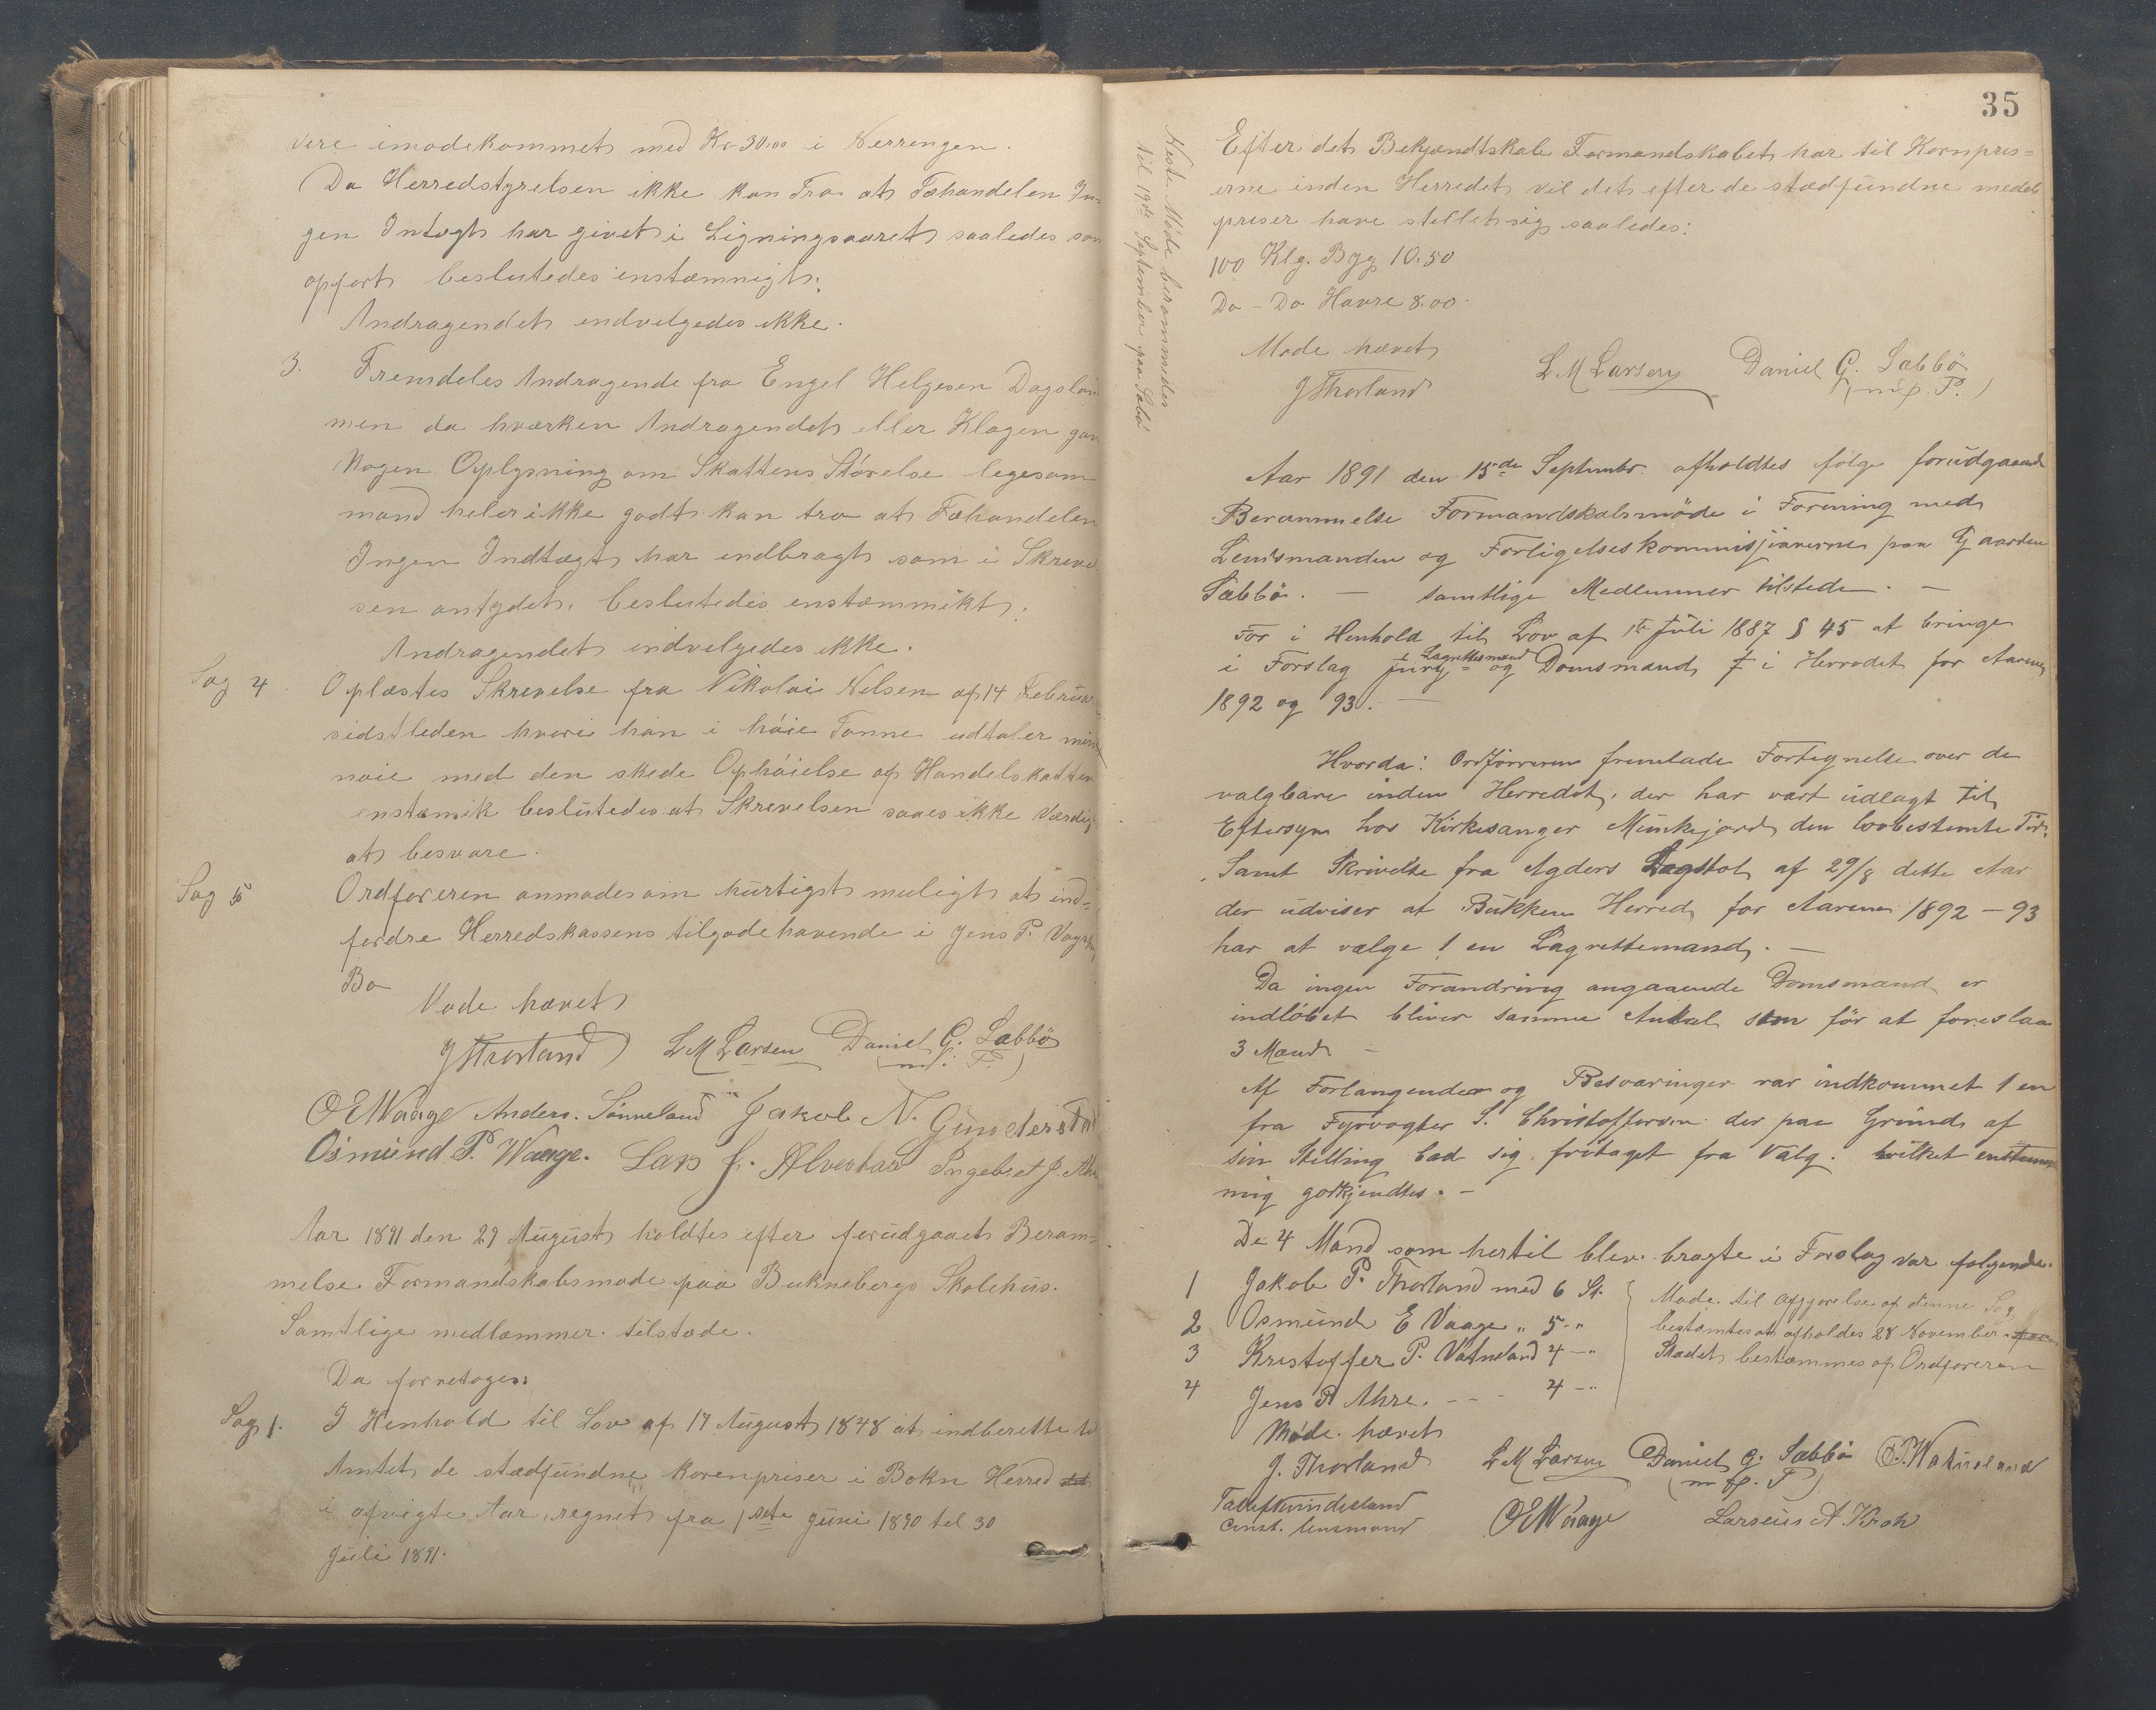 vere imødekommet med Kr 30.00 i Nerrengen.
Da Herredstyrelsen ikke kan Tro at Fæhandelen In-
gen Intægt har givet i Ligningsaaret saaledes som
opfort beslutedes enstæmmigt:
Andragendet indvelgedes ikke.
3. Fremdeles Andragende fra Engel Helgesen Dagsland
men da hværken Andragendet eller Klagen gav
Nogen Oplysning om Skattens Størelse legesom
mand heler ikke godt kan tro at Fæhandelen
Ingen Indtægt har indbragt som i Skrevel
sen antydet, beslutedes enstæmmikt:
Andragendet indvelgedes ikke.
Sag 4 Oplæstes Skrevelse fra Nikolai Nilsen af 14 Februar
sidstleden hvori han i høie Tonne udtaler mis
noie med den skede Ophøielse af Handelskatten
enstæmik beslutedes at Skrevelsen saaes ikke Værdig
at besvare.
Sag 5 Ordføreren anmodes om hurtigst muligt at ind-
fordre Herredskassens tilgodehavende i Jens P. Vaages
Bo
Mode hævet
J Thorland L M Larsen Daniel G. Sæbbö
(m. f. P.)
O E Waage Anders. Sønneland Jakob N. Gunderstad
Osmund P. Waage. Lars J. Alvestad Ingebret J. Ahre
Aar 1891 den 29 August holdtes efter forudgaaet Beram-
melse Formandskabsmode paa Buknebergs Skolehus.
Samtlige medlæmmer tilstæde.
Da forretoges:
Sag 1. I Henhold til Lov af 17 August 1848 at indberette til
Amtet de stædfundne kornpriser i Bokn Herred
i afvigte Aar, regnet fra 1ste Juni 1890 tel 30
Juli 1891.
35
Neste Møde berammedes
til 19de September paa Sæbø
Efter det Bekjendtskab Formandskabet har til Kornpris-
erne inden Herredet vil det efter de stædfundne medel
priser have stillet sig saaledes:
100 Klg. Byg 10.50
Do - Do Havre 8.00.
Mode hævet
J Thorland L M Larsen Daniel G. Sæbbö
(m. f. P.)
Aar 1891 den 15de Septembr. afholdtes følge forudgaaende
Berammelse Formandskabsmøde i Forening med
Lensmanden og Forligelseskommisjionerne paa Gaarden
Sæbbö. — samtlige Medlemmer tilstede. —
For i Henhold til Lov af 1te Juli 1887 § 45 at bringe
i Forslag jury- Lagrettesmænd og Domsmænd i Herredet for Aarene
1892 og 93. —
Hvorda: Ordføreren fremlade Fortegnelse over de
valgbare inden Herredet, der har vært udlagt til
Eftersyn hos Kirkesanger Munkejord den lovbestemte Tid.
Samt Skrivelse fra Agders Lagstol af 29/8 dette Aar
der udviser at Bukken Herred for Aarene 1892 – 93
har at vælge 1 en Lagrettemand. —
Da ingen Forandring angaaende Domsmænd er
indløbet bliver samme Antal som før at foreslaa
3 Mænd. —
Af Forlangender og Besværinger var indkommet 1 en
fra Fyrvogter S. Christoffersen der paa Grund af
sin Stilling bad sig fritaget fra Valg. hvilket enstem
mig godkjendtes. –
De 4 Mænd som hertil blev bragte i Forslag var folgende.
1 Jakob P. Thorland med 6 St.
2 Osmund E Vaage „ 5 - „
3 Kristoffer P. Vatneland 4 - „
4 Jens P Ahre. - - 4 - „
Mode til afgjorelse af denne Sag
bestæmtes at afholdes 28 November.
Stædet bestæmmes af Ordføreren
Møde hævet
J. Thorland L M Larsen Daniel G. Sæbbö O. P. Watneland
(m. f. P)
const. lensmand O E Waage Larseus A. Krok